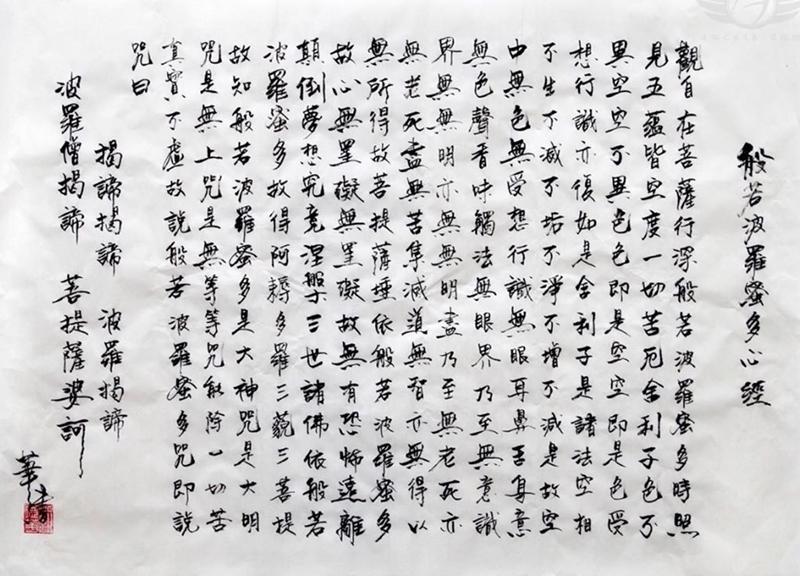 般若波羅蜜多心經
觀自在菩薩行深般若波羅蜜多時照
見五蘊皆空度一切苦厄舍利子色不
異空空不異色色即是空空即是色受
想行識亦復如是舍利子是諸法空相
不生不滅不垢不淨不增不減是故空
中無色無受想行識無眼耳鼻舌身意
無色聲香味觸法無眼界乃至無意識
界無無明亦無無明盡乃至無老死亦
無老死盡無苦集滅道無智亦無得以
無所得故菩提薩埵依般若波羅蜜多
故心無罣礙無罣礙故無有恐怖遠離
顛倒夢想究竟涅槃三世諸佛依般若
波羅蜜多故得阿耨多羅三藐三菩提
故知般若波羅蜜多是大神咒是大明
咒是無上咒是無等等咒能除一切苦
真實不虛故說般若波羅蜜多咒即說
咒曰
揭諦揭諦 波羅揭諦
波羅僧揭諦 菩提薩婆訶